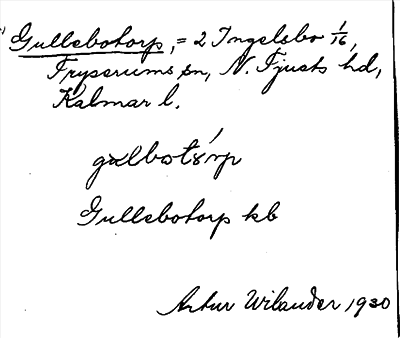 Gullebotorp, = 2 Ingelsbo 1/16,
Fryserums sn, N. Tjusts hd,
Kalmar l.
Gullebotorp kb
Artur Wilander 1930